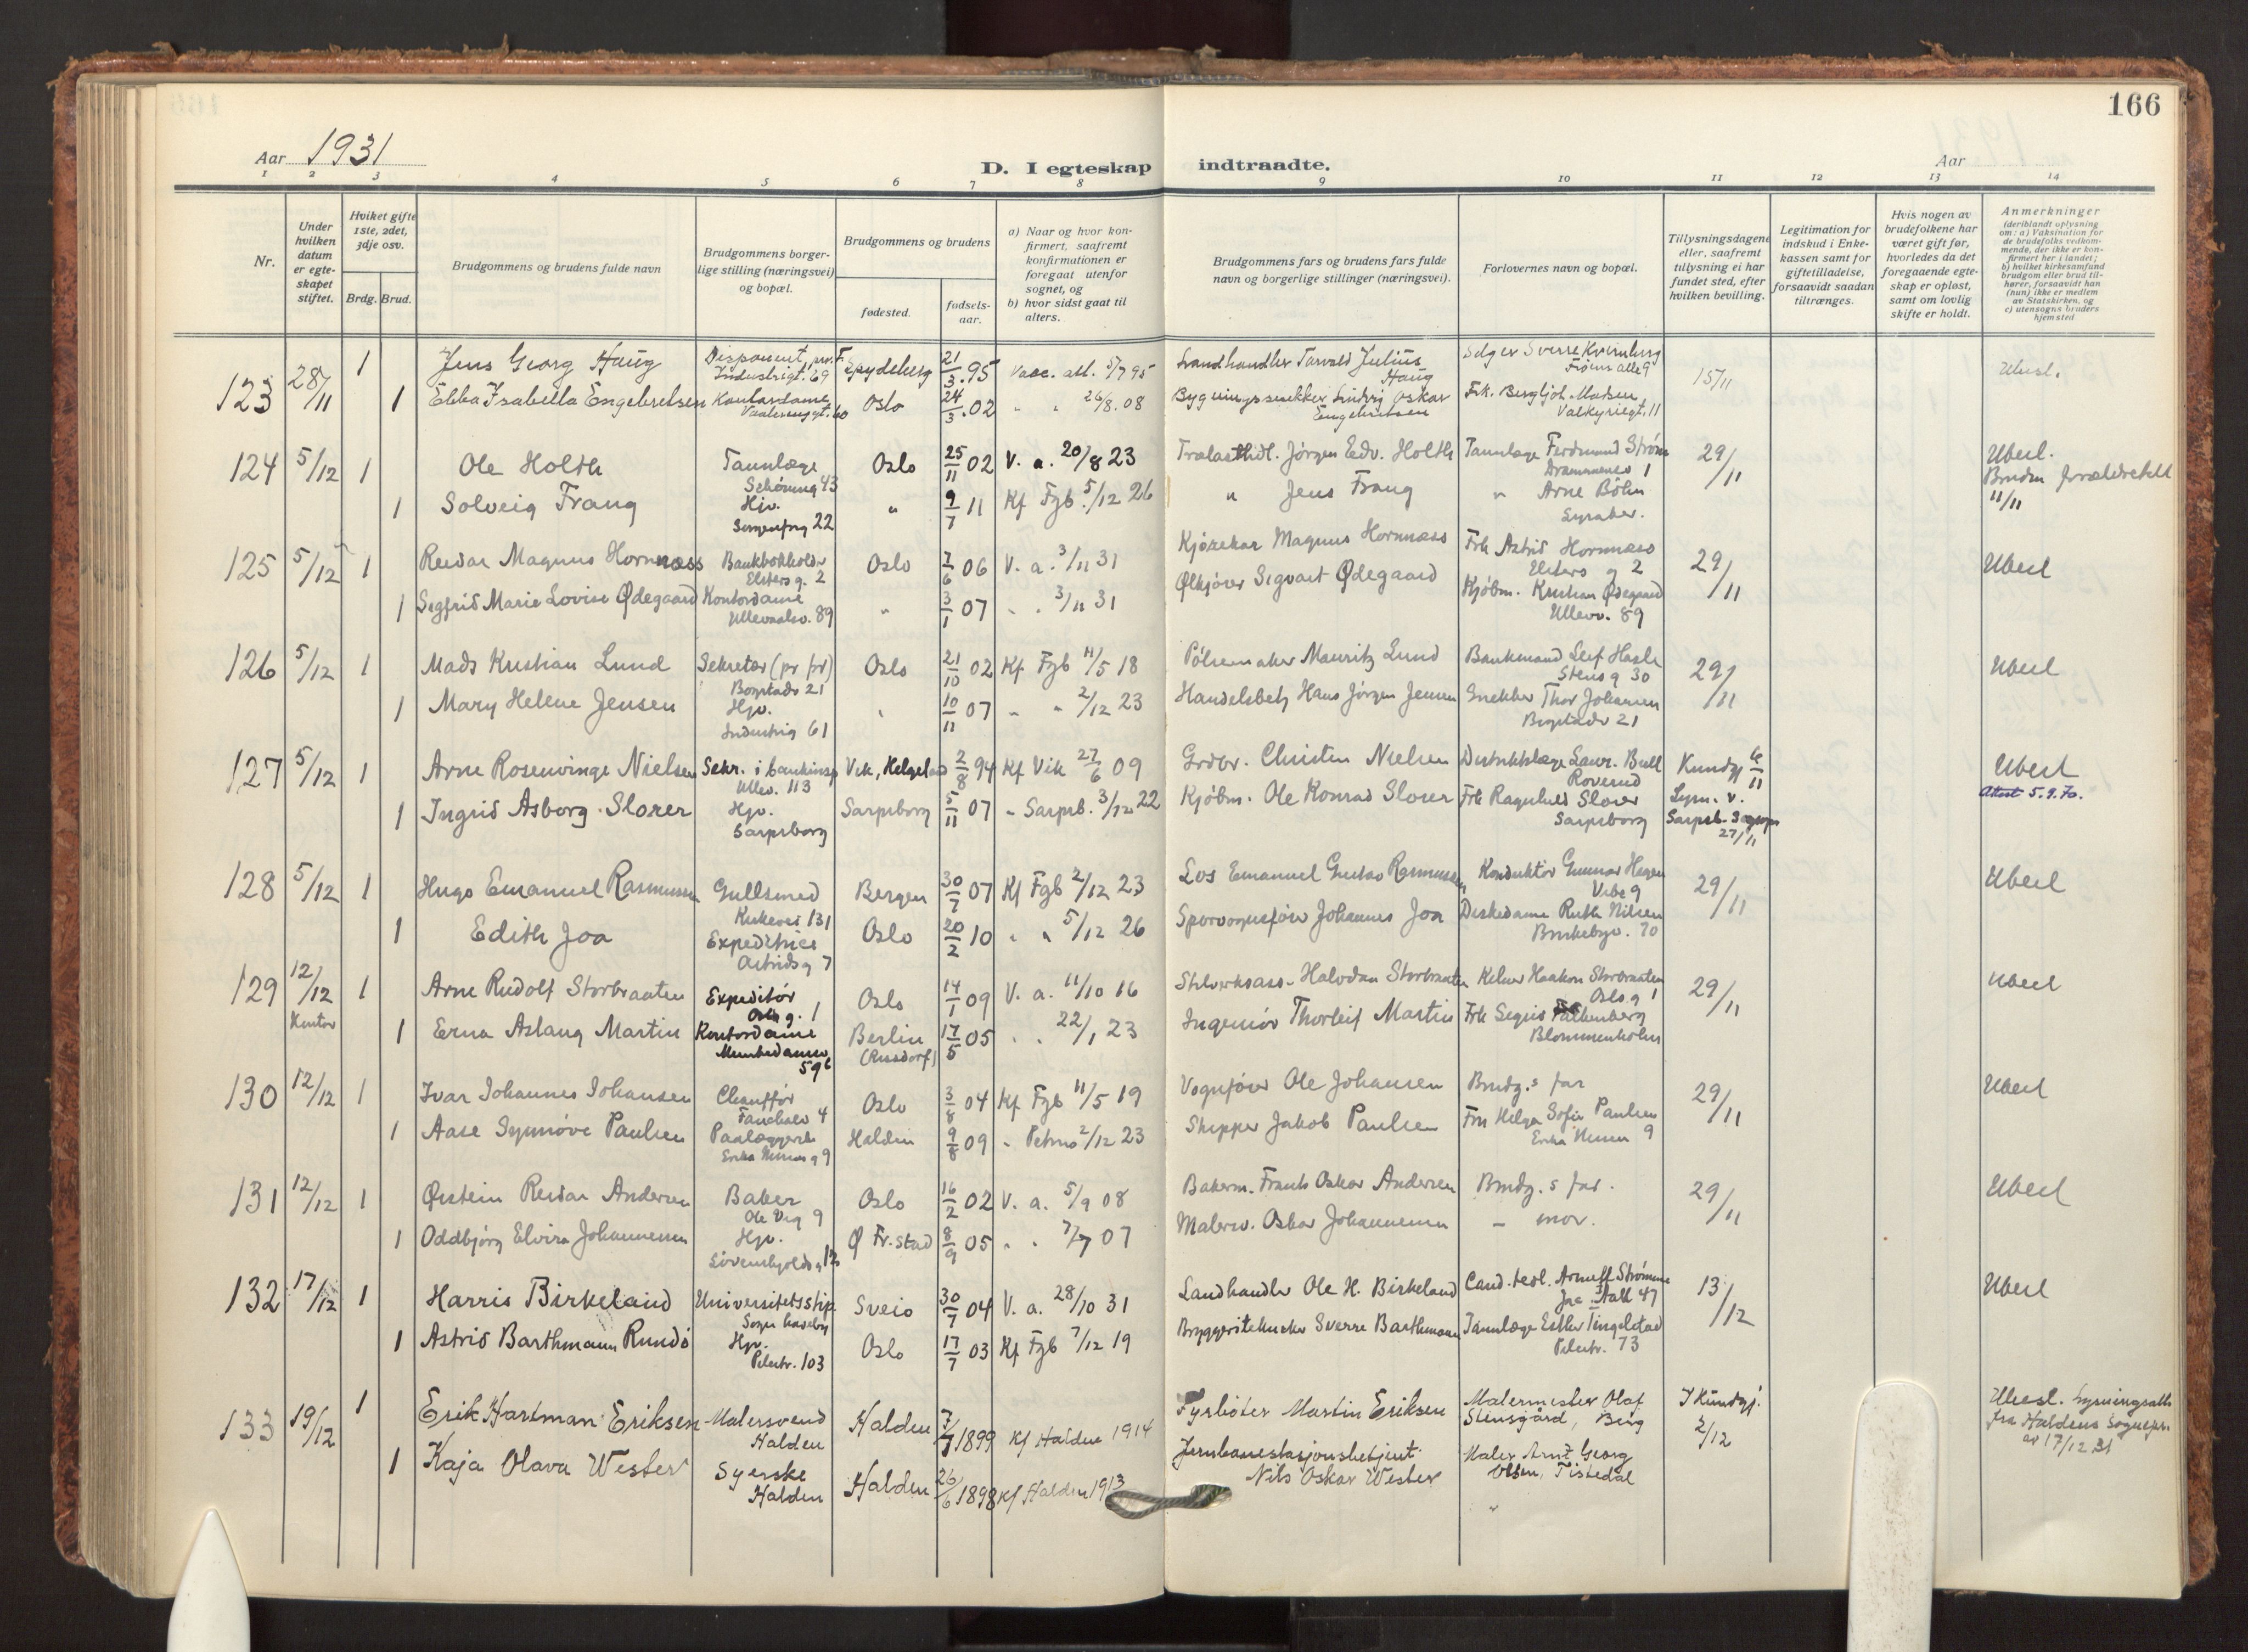 166
Aar 1931
D. I egteskap indtraadte.
Aar
1 2 3 4 5 6 7 8 9 10 11 12 13 14
Nr.
Under hvilken datum er egteskapet stiftet.
Hviket gifte 1ste, 2det, 3dje osv.
Brdg. Brud.
Brudgommens og brudens fulde navn
Brudgommens borgerlige stilling (næringsvei) og bopæl.
Brudgommens og brudens
fødested.
fødselsaar.
a) Naar og hvor konfirmert, saafremt konfirmationen er foregaat utenfor sognet, og
b) hvor sidst gaat til alters.
Brudgommens fars og brudens fars fulde navn og borgerlige stillinger (næringsvei).
Forlovernes navn og bopæl.
Tillysningsdagene eller, saafremt tillysning ei har fundet sted, efter hvilken bevilling.
Legitimation for indskud i Enkekassen samt for giftetilladelse, forsaavidt saadan tiltrænges.
Hvis nogen av brudefolkene har været gift før, hvorledes da det foregaaende egteskap er opløst, samt om lovlig skifte er holdt.
Anmerkninger (deriblandt oplysning om: a) Vaksination for de brudefolks vedkommende, der ikke er konfirmert her i landet; b) hvilket kirkesamfund brudgom eller brud tilhører, forsaavidt han (hun) ikke er medlem av Statskirken, og c) utensogns bruders hjemsted
123 28/11 1 Jens Georg Haug Disponent, Industrigt. 69 Spydeberg 21/3.95 Vacc. att. 5/7 95 Landhandler Torvald Julius Haug Selger Sverre Kvinnberg 15/11
1 Ebba Isabella Engebretsen Kontordame Vaalerenggt. 60 Oslo 24/3.02 " " 26/8.08 Bygningssnekker Ludvig Oskar Engebretsen Frk. Bergljot Madsen Valkyriegt. 11
124 5/12 1 Ole Holth Tannlæge Schøning 43 Oslo 25/11 02 V. a. 20/8 23 Trælasthdl. Jørgen Edv. Holth Tannlæge Ferdinand Strøm Drammensv 1 29/11 Uberl.
1 Solveig Frang Hjv. Sorgenfrig 22 " 9/7 11 Kf Fgb. 5/12 26 " Jens Frang " Arne Böhn 11/11
125 5/12 1 Reidar Magnus Hornnæss Bankbokholder Elsters g. 2 Oslo 7/6 06 V. a. 3/11 31 Kjørekar Magnus Hornnæss Frk Astrid Hornnæss Elsters g 2 29/11 Uberl
1 Sigfrid Marie Lovise Ødegaard Kontordame Ullevaalsv. 89 " 3/1 07 " " 3/11 31 Ølkjører Sigvart Ødegaard Kjøbm. Kristian Ødegaard Ullevv. 89
126 5/12 1 Mads Kristian Lund Sekretær (pr fr) Bogstadv 21 Oslo 21/10 02 Kf Fgb 11/5 18 Pølsemaker Mauritz Lund Bankmand Leif Hasle Stens g 30 29/11 Uberl
1 Mary Helene Jensen Hjv. Industrig 61 " 10/11 07 " " 2/12 23 Handelsbetj Hans Jørgen Jensen Snekker Thor Johansen Bogstadv 21
127 5/12 1 Arne Rosenvinge Nielsen Sekr. i bankinsp Ullev. 113 Vik, Helgeland 2/8 94 Kf Vik 27/6 09 Grdbr. Christen Nielsen Distriktslæge Laur. Bull Roverud Kundgj 6/11 Uberl
1 Ingrid Asborg Slorer Hjv. Sarpsborg Sarpsborg 5/11 07 " Sarpsb. 3/12 22 Kjøbm. Ole Konrad Slorer Frk Ragnhild Slorer Sarpsborg Lysn. v. Sarpsb. Sognepr 27/11 Attest 5.9.70.
128 5/12 1 Hugo Emanuel Rasmussen Gullsmed Kirkevei 131 Bergen 30/7 07 Kf Fgb 2/12 23 Los Emanuel Gustav Rasmussen Konduktør Gunnar Hagen Vibeg 29/11 Uberl
1 Edith Joa Expeditrice Astridsg 7 Oslo 20/2 10 " " 5/12 26 Sporvognsfører Johannes Joa Diskedame Ruth Nilsen
129 12/12 Kontor 1 Arne Rudolf Storbraaten Expeditør Oslo g. 1 Oslo 14/1 09 V. a. 11/10 16 Halvdan Storbraaten Kelner Haakon Storbraaten Oslo g 1 29/11 Uberl
1 Erna Aslaug Martin Kontordame Munkedamsv 59 b Berlin 17/5 05 " " 22/1 23 Ingeniør Thorleif Martin Frk Sigrid Falkenberg Blommenholm
130 12/12 1 Ivar Johannes Johansen Chauffør 4 Oslo 3/8 04 Kf Fgb 11/5 19 Vognfører Ole Johansen Brudg.s far 29/11 Uberl
1 Aase Synnöve Paulsen Paalæggersk 9 Halden 9/8 09 " Petrus 2/12 23 Skipper Jakob Paulsen Fru Helga Sofie Paulsen 9
131 12/12 1 Øistein Reidar Andersen Baker Ole Vig 9 Oslo 16/2 02 V. a. 5/9 08 Bakerm. Frants Oskar Andersen Brudg.s far. 29/11 Uberl
1 Oddbjørg Elvira Johannessen Hjv. Løvenskjoldsg 12 Ø Fr.stad 8/9 05 " " 7/7 07 Malersv. Oskar Johannessen — mor.
132 17/12 1 Harris Birkeland Universitetsstip. Sogn haveby Sveio 30/7 04 V. a. 28/10 31 Landhandler Ole H. Birkeland Cand. teol. Arnulf Strømme Jac Aall 47 13/12 Uberl
1 Astrid Barthmann Rundö Hjv. Pilestr. 103 Oslo 17/7 03 Kf Fgb 7/12 19 Bryggeritekniker Sverre Barthmann Tannlæge Esther Tingelstad Pilestr. 73
133 19/12 1 Erik Hartman Eriksen Malersvend Halden Halden 7/7 1899 Kf Halden 1914 Fyrbøter Martin Eriksen Malermester Olaf Stensgård, Berg I Kundgj. 2/12 Lysningsatt. fra Haldens Sognepr. av 17/12 31
1 Kaja Olava Wester Syerske Halden Halden 26/6 1898 Kf Halden 1913 Jernbanestasjonsbetjent Nils Oskar Wester Maler Arnt Georg Olsen, Tistedal